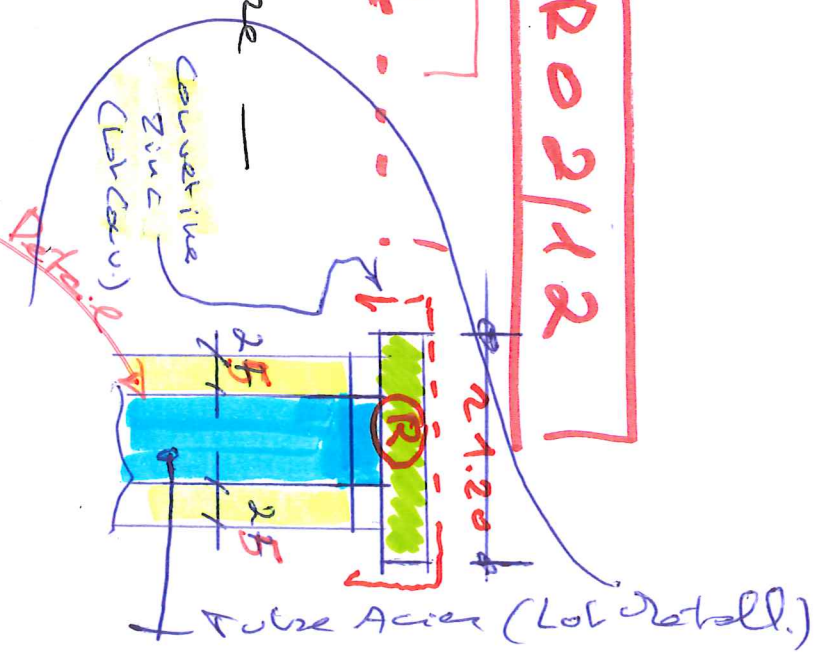 R02/12
re —
Couvertine
Zinc
(Lot Couv.)
Détail
25
25
R
21.20
Tube Acier (Lot Métall.)